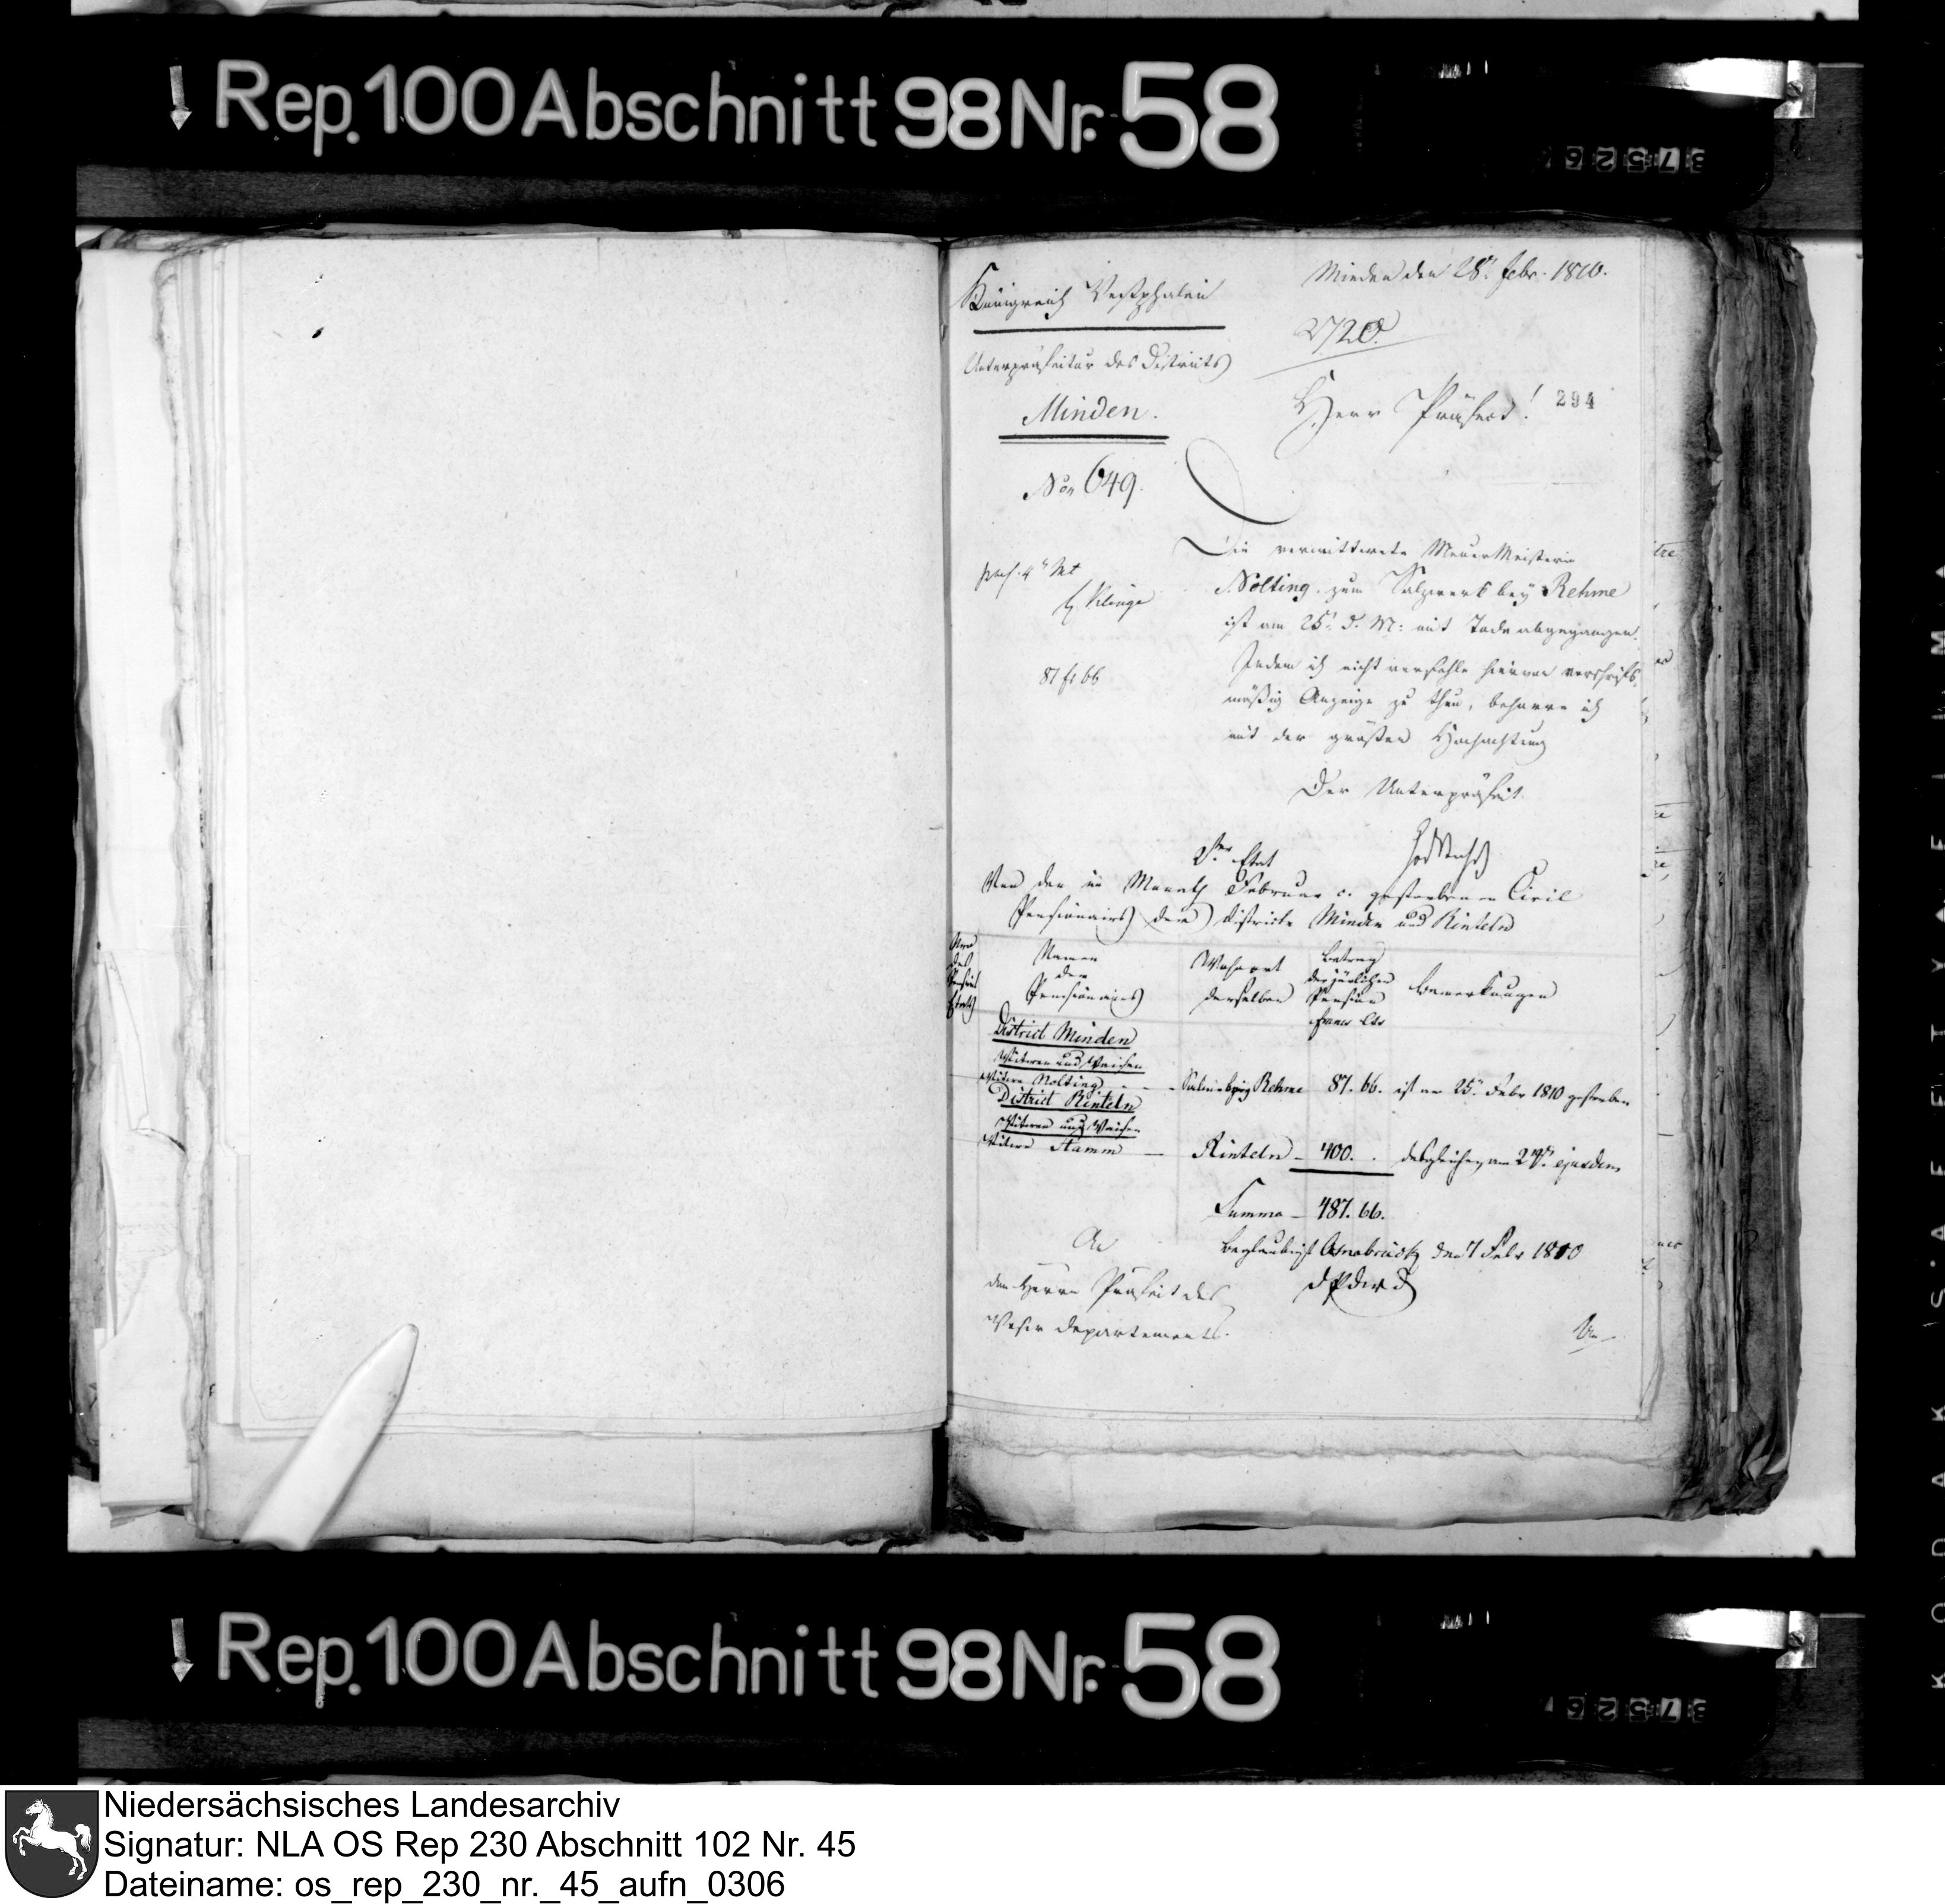 Rep. 100 Abschnitt 98 Nr. 58
37526
Königreich Westphalen
Unterpräfectur des Districts
Minden.
Nro 649.
Minden den 28t Febr. 1810.
2720.
Herr Präfect!
294
Die verwittwete Mauer Meisterin
Nolting zum Salzwerk bey Rehme
ist am 25t d. M: mit Tode abgegangen.
Indem ich nicht verfehle hiervon vorschrifts
mäßig Anzeige zu thun, beharre ich
mit der größten Hochachtung
Der Unterpräfect.
praes. 4t
H. Klinge
87 fr 66
Etat
Von den im Monath Februar c. gestorbenen Civil
Pensionairs der Districte Minden und Rinteln
Nro des Etats
Namen der Pensionairs
Wohnort derselben
Betrag der järlichen Pension
Francs Cts
Bemerkungen
District Minden
Witwen und Waisen
Witwe Nolting - - - Rehme 87. 66. ist am 25t Febr 1810 gestorben
District Rinteln
Witwen und Waisen
Witwe Hamm — Rinteln - 400. . desgleichen am ejusdem
Summa - 487. 66.
Beglaubigt Osnabrück den 7 Febr 1810
An
den Herrn Präfect des
Weser Departements.
Rep. 100 Abschnitt 98 Nr. 58
37526
Niedersächsisches Landesarchiv
Signatur: NLA OS Rep 230 Abschnitt 102 Nr. 45
Dateiname: os_rep_230_nr._45_aufn_0306